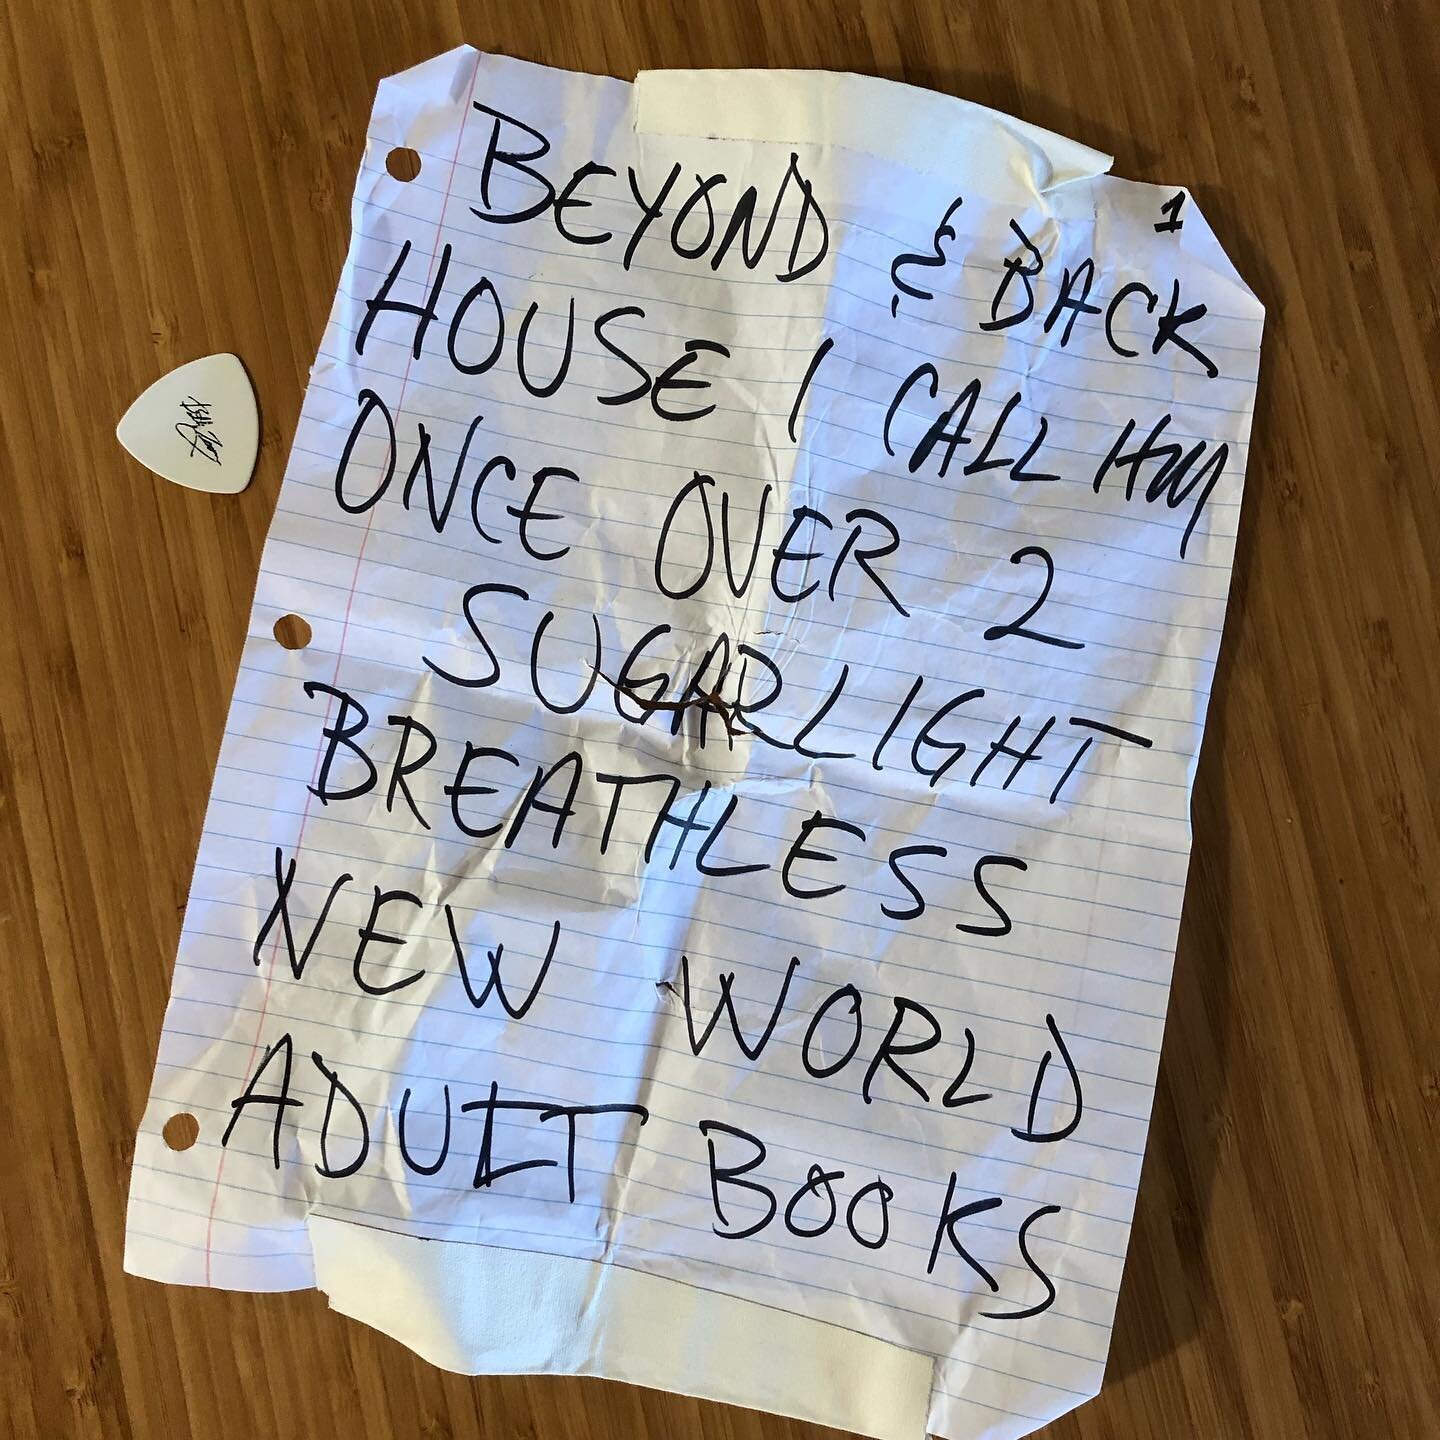 1
BEYOND & BACK
HOUSE I CALL HM
ONCE OVER 2
SUGARLIGHT
BREATHLESS
NEW WORLD
ADULT BOOKS